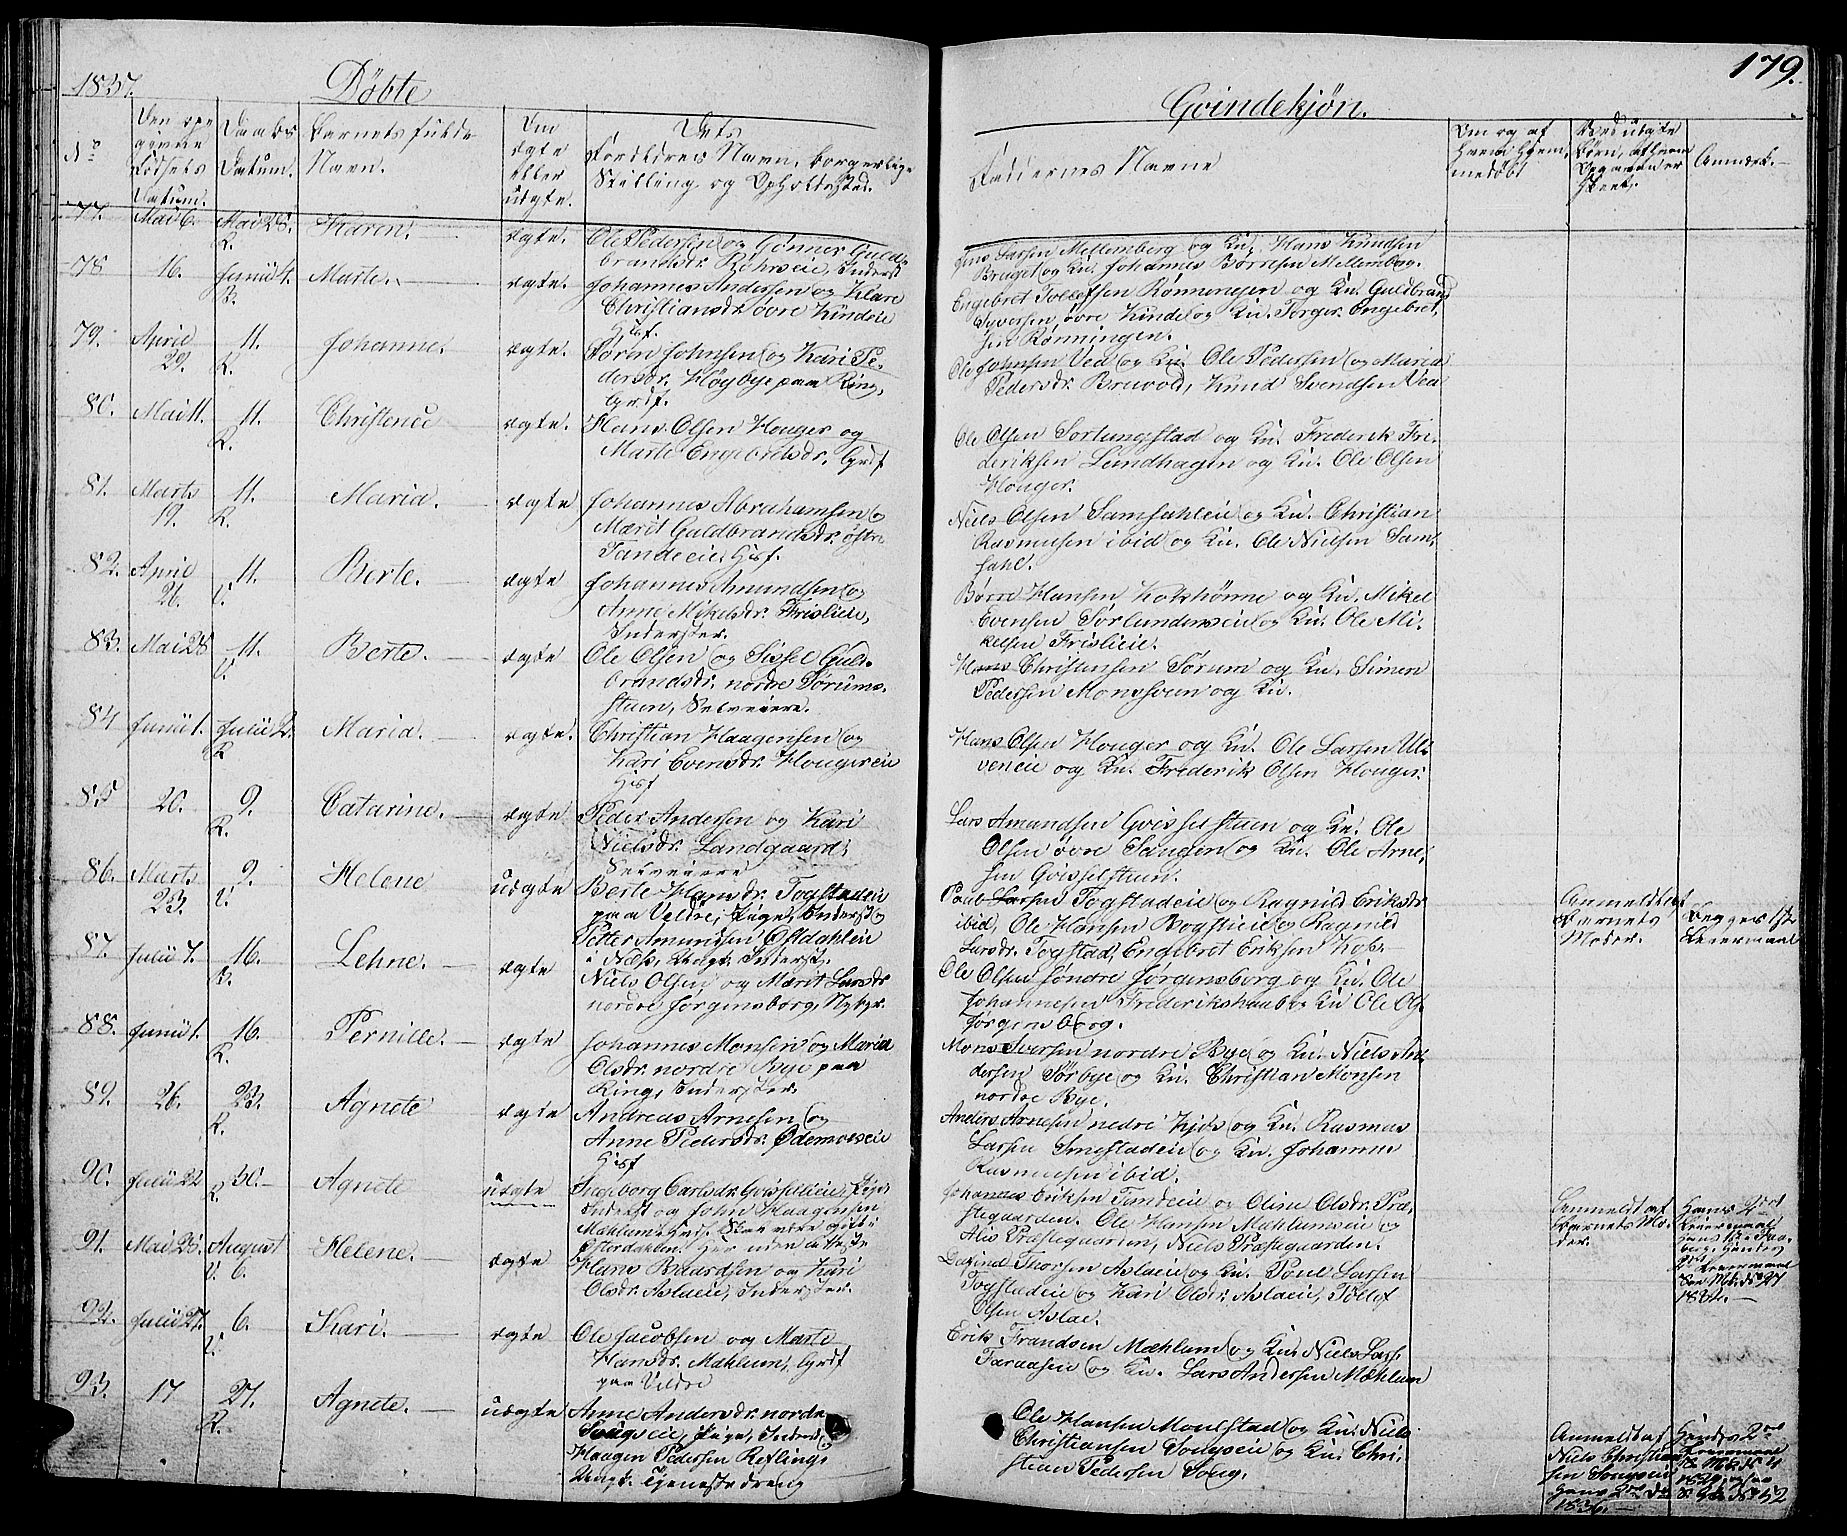 1837.
Döbte
Qvindekjön.
179.
No
Den opgivne Fødsels Datum.
Daabs Datum.
Barnets fulde Navn.
Om ægte eller uægte.
Dets Forældres Navn, borgerlige Stilling og Opholdssted.
Faddernes Navne
Om og af hvem hjemmedøbt
Anmærk.
77. Mai 6. Mai 28. R. Karen. ægte. Ole Pedersen og Gunner Guldbrandsdr. Inderst
Jens Larsen Mellemberg og Ku. Hans Knudsen
Bruget og Ku. Johannes Børresen Mellemberg.
78 16. Junii 4. Marte. ægte. Johannes Andersen og Klare
Christiansdr. øvre Kindeie
Husf.
Engebret Tollefsen Rønningen og Ku. Guldbrand
Syversen øvre Kinde og Ku. Torger Engebret,
sen Rønningen.
79. April 29. 11. R. Johanne. ægte. Søren Johnsen og Kari Pe,
dersdr. Høgbye paa Ring,
Grdf.
Ole Johnsen Vea og Ku. Ole Pedersen og Maria
Pedersdr. Bruvold, Knud Svendsen Vea
80. Mai 11. 11. R. Christence ægte. Hans Olsen Houger og
Marte Engebretsdr. Grdf
Ole Olsen Sorlungstad og Ku. Frederik Fre,
deriksen Lundhagen og Ku. Ole Olsen
Houger.
81. Marts 19. 11. R. Maria. ægte Johannes Abrahamsen og
Marit Guldbrandsdr. østre
Tandeeie, Husf.
Niels Olsen Samsahleie og Ku. Christian
Rasmusen ibid og Ku. Ole Nielsen Sam,
sahl.
82. April 26. 11. V. Berte. ægte Johannes Amundsen og
Anne Mikelsdr. Frislieie,
Inderster.
Børre Hansen og Ku. Mikel
Evensen Sørlundenseie og Ku. Ole Mi,
kelsen Frislieie.
83. Mai 28 11. V. Berte. ægte Ole Olsen og Sissel Guld,
brandsdr. nordre Sørums,
stuen, Selveiere.
Hans Christiansen Sørum og Ku. Simen
Pedersen Monssveen og Ku.
84 Junii 1. Julii 2. R Maria. ægte. Christian Haagensen og
Kari Evensdr. Hougereie
Husf
Hans Olsen Houger og Ku. Ole Larsen Ul,
veneie og Ku. Frederik Olsen Houger.
85 20. 9. R. Catarine. ægte Peder Andersen og Kari
Nielsdr. Landgaard,
Selveiere
Lars Amundsen Gvisselstuen og Ku. Ole
Olsen øvre Saugen og Ku. Ole Arne,
sen Gvisselstuen.
86. Marts 23. 9. V. Helene uægte Berte Hansdr. Togstadeie
paa Veldre, Pige, Inderst og
Petter Amundsen Ostdahleie
i Næs, Ungk. Inderst.
Poul Larsen Togstadeie og Ragnild Eriksdr.
ibid, Ole Hansen Bogstieie og Ragnild
Larsdr. Togstad, Engebret Eriksen
Anmeldt af
Barnets
Moder.
Begges 1ste
Leiermaal
87. Julii 7. 16. Lehne. ægte Niels Olsen og Marit Larsdr
nordre Jørgensborg, Nybgr.
Ole Olsen søndre Jørgensborg og Ku. Ole
Johannesen Frederikshaab og Ku Ole Ols.
Jørgensborg.
88. Junii 1. 16. R. Pernille. ægte Johannes Monsen og Maria
Olsdr. nordre Bye paa
Ring, Inderster.
Mons Iversen nordre Bye og Ku. Niels An,
dersen Sørbye og Ku. Christian Monsen
nordre Bye.
89. 26. 23. R. Agnete ægte Andreas Arnesen og
Anne Pedersdr. Ødemoseie
Husf
Anders Arnesen nedre Kjøs og Ku. Rasmus
Larsen Smestadeie og Ku. Johannes
Rasmusen ibid.
90. Julii 22 30. R. Agnete uægte Ingeborg Carlsdr. Gvisselieie, Pige,
Inderst og John Haagensen
Johannes Eriksen Tandeeie og Oline Olsdr. Præ,
stegaarden. Ole Hansen Mæhlumseie og
Alis Præstegaarden, Niels Præstegaarden.
Anmeldt af
Barnets Mo,
der.
Hans 2det
Leiermaal
91. Mai 25. August 6. V. Helene. ægte Hans Baardsen og Kari
Olsdr. Aslaeie, Inderster.
Thorsen Aslaeie og Ku. Poul Larsen
Togstadeie og Kari Olsdr. Aslaeie, Tollef
Olsen Aslae.
92. Julii 27. 6. V. Kari. ægte Ole Jacobsen og Marte
Hansdr. Mæhlum, Grdf
paa Veldre
Erik Frandsen Mæhlum og Ku. Niels Lars
Taraasen og Ku. Lars Andersen Mæhlum
93. 17 27. R. Agnete. uægte Anne Andersdr. nordre
Sougseie, Pige, Inderst, og
Haagen Pedersen Refling,
Ungk. Tjenestedreng
Ole Hansen Moulstad og Ku. Niels
Christiansen Sougseie og Ku. Chri,
stian Pedersen Soug.
Anmeldt af
Niels Christian
sen Sougseie
Hendes 2det
Leiermaal